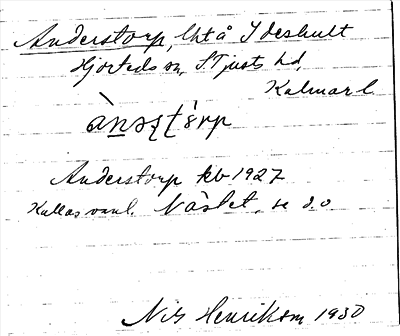 Anderstorp, lht å Ydeshult
Hjorteds sn, S Tjusts hd,
Kalmar l
Anderstorp kb 1927
Kallas vanl. Näslet, se d.o
Nils Henrikson 1930